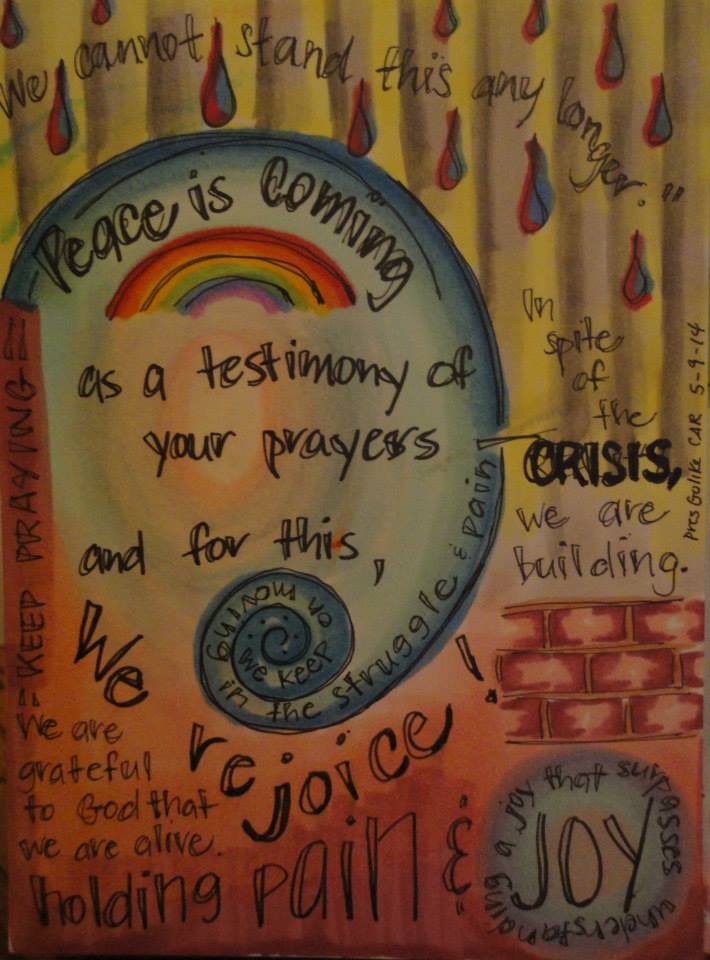 We cannot stand this any longer."
Peace is coming
as a testimony of
your prayers
and for this,
We
rejoice!
we keep on moving in the struggle & pain
KEEP PRAYING
In
spite
of
the
CRISIS,
we are
building.
pres Gulike CAR 5-9-14
We are
grateful
to God that
we are alive.
holding pain &
JOY
a joy that surpasses understanding